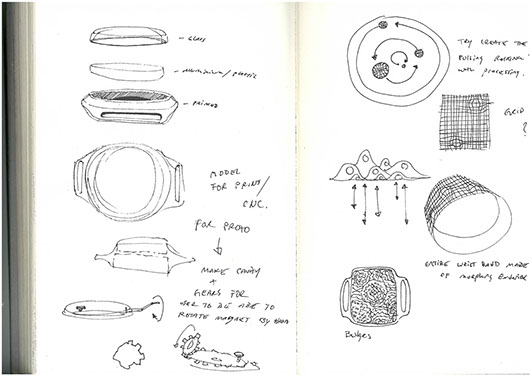 - GLASS
- ALUMINIUM/PLASTIC
- PRINTED
MODEL
FOR PRINT/
CNC.
FOR PROTO
MAKE CAVITY
+
GEARS FOR
USER TO BE ABLE TO
ROTATE MAGNET BY HAND
TRY CREATE THE
BULGING ROTATING
WITH PROCESSING.
GRID
?
ENTIRE WRIST BAND MADE
OF MORPHING
Bulges